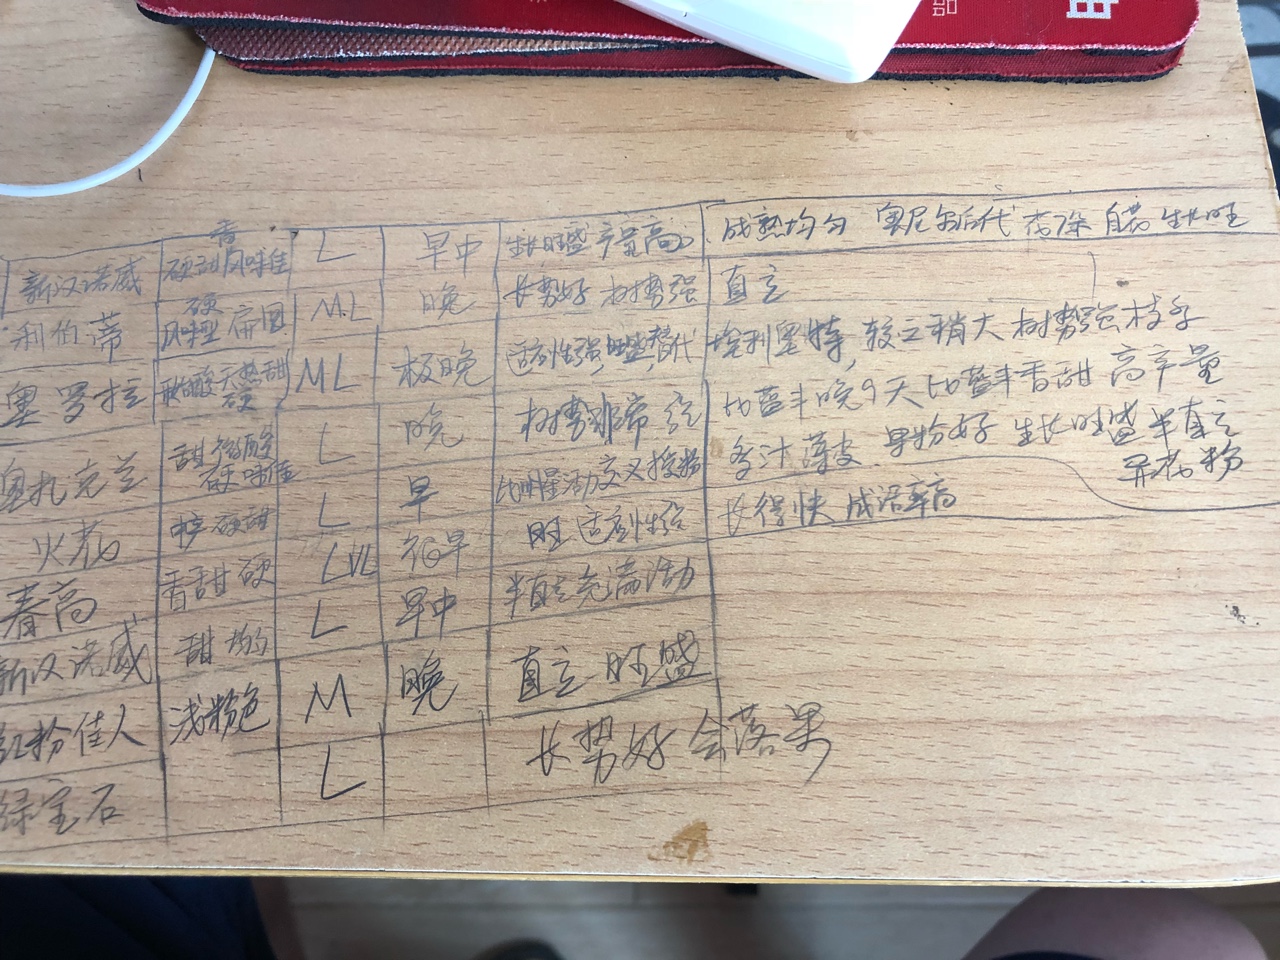 新汉诺威 硬甜香风味佳 L 早中 生长旺盛 产量高 成熟均匀 奥尼尔后代 花深 自花 生长旺
利伯蒂 硬 风味型 扁圆 ML 晚 长势好 树势强 直立
奥罗拉 酸 天热甜 硬 ML 极晚 适应性强 替代 埃利奥特,较之稍大 树势强
奥扎克兰 甜 微酸 硬 味佳 L 晚 树势非常 比蓝丰晚9天 比蓝丰香甜 高产量
火花 硬甜 L 早 交叉授粉 多汁 薄皮 果粉好 生长旺盛 半直立 异花粉
春高 香甜 硬 L VL 很早 旺 适应性 长得快 成活率高
新汉诺威 甜 L 早中 半直立 充满活力
红粉佳人 浅粉色 M 晚 直立 旺盛
绿宝石 L 长势好 会落果